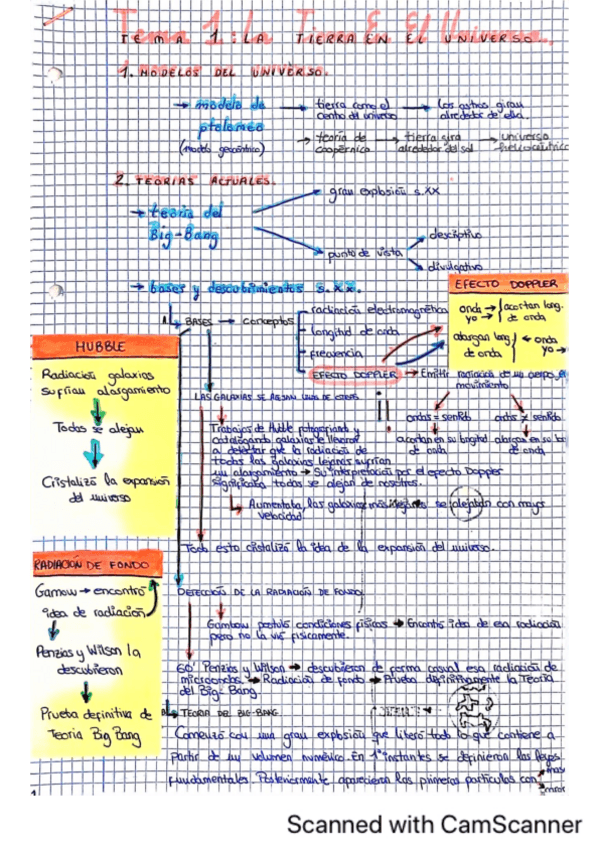 TEMA 1: LA TIERRA EN EL UNIVERSO.
1. MODELOS DEL UNIVERSO.
→ modelo de ptolomeo (modelo geocéntrico) → tierra como el centro del universo → los astros giran alrededor de ella.
→ teoría de coopérnico → tierra gira alrededor del sol → universo heliocéntrico
2. TEORIAS ACTUALES.
→ teoría del Big-Bang
gran explosión s.XX
punto de vista
descriptivo
divulgativo
→ bases y descubrimientos s.XX.
BASES → conceptos
radiación electromagnética
longitud de onda
frecuencia
EFECTO DOPPLER → Emitir radiación de un cuerpo en movimiento
EFECTO DOPPLER
onda → yo → acortan long. de onda
alargan long. de onda ← onda yo →
ondas = sentido
ondas ≠ sentido
acortan en su longitud de onda
alargan en su de onda
HUBBLE
Radiación galaxias sufrían alargamiento
Todas se alejan
Cristalizó la expansión del universo
LAS GALAXIAS SE ALEJAN UNAS DE OTRAS
Trabajos de Huble fotografiando y
catalogando galaxias le llevaron
a detectar que la radiación de
todas las galaxias lejanas sufrían
un alargamiento → Su interpretación por el efecto Doppler
significaba todas se alejan de nosotros.
Aumentaba, las galaxias más lejanas se alejaban con mayor
velocidad
Todo esto cristalizó la idea de la expansión del universo.
RADIACIÓN DE FONDO
Gamow → encontró
idea de radiación
Penzias y Wilson la
descubrieron
Prueba definitiva de
Teoría Big Bang
DETECCIÓN DE LA RADIACIÓN DE FONDO
Gambow postuló condiciones físicas → Encontró idea de esa radiación
pero no la vió físicamente.
60' Penzias y Wilson → descubrieron de forma casual esa radiación de
microondas. → Radiación de fondo → Prueba definitivamente la Teoría
del Big-Bang
TEORIA DEL BIG-BANG
Comenzó con una gran explosión que liberó todo lo que contiene a
partir de un volumen numérico. En 1º instantes se definieron las leyes
fundamentales. Posteriormente aparecieron las primeras partículas con masa
Scanned with CamScanner